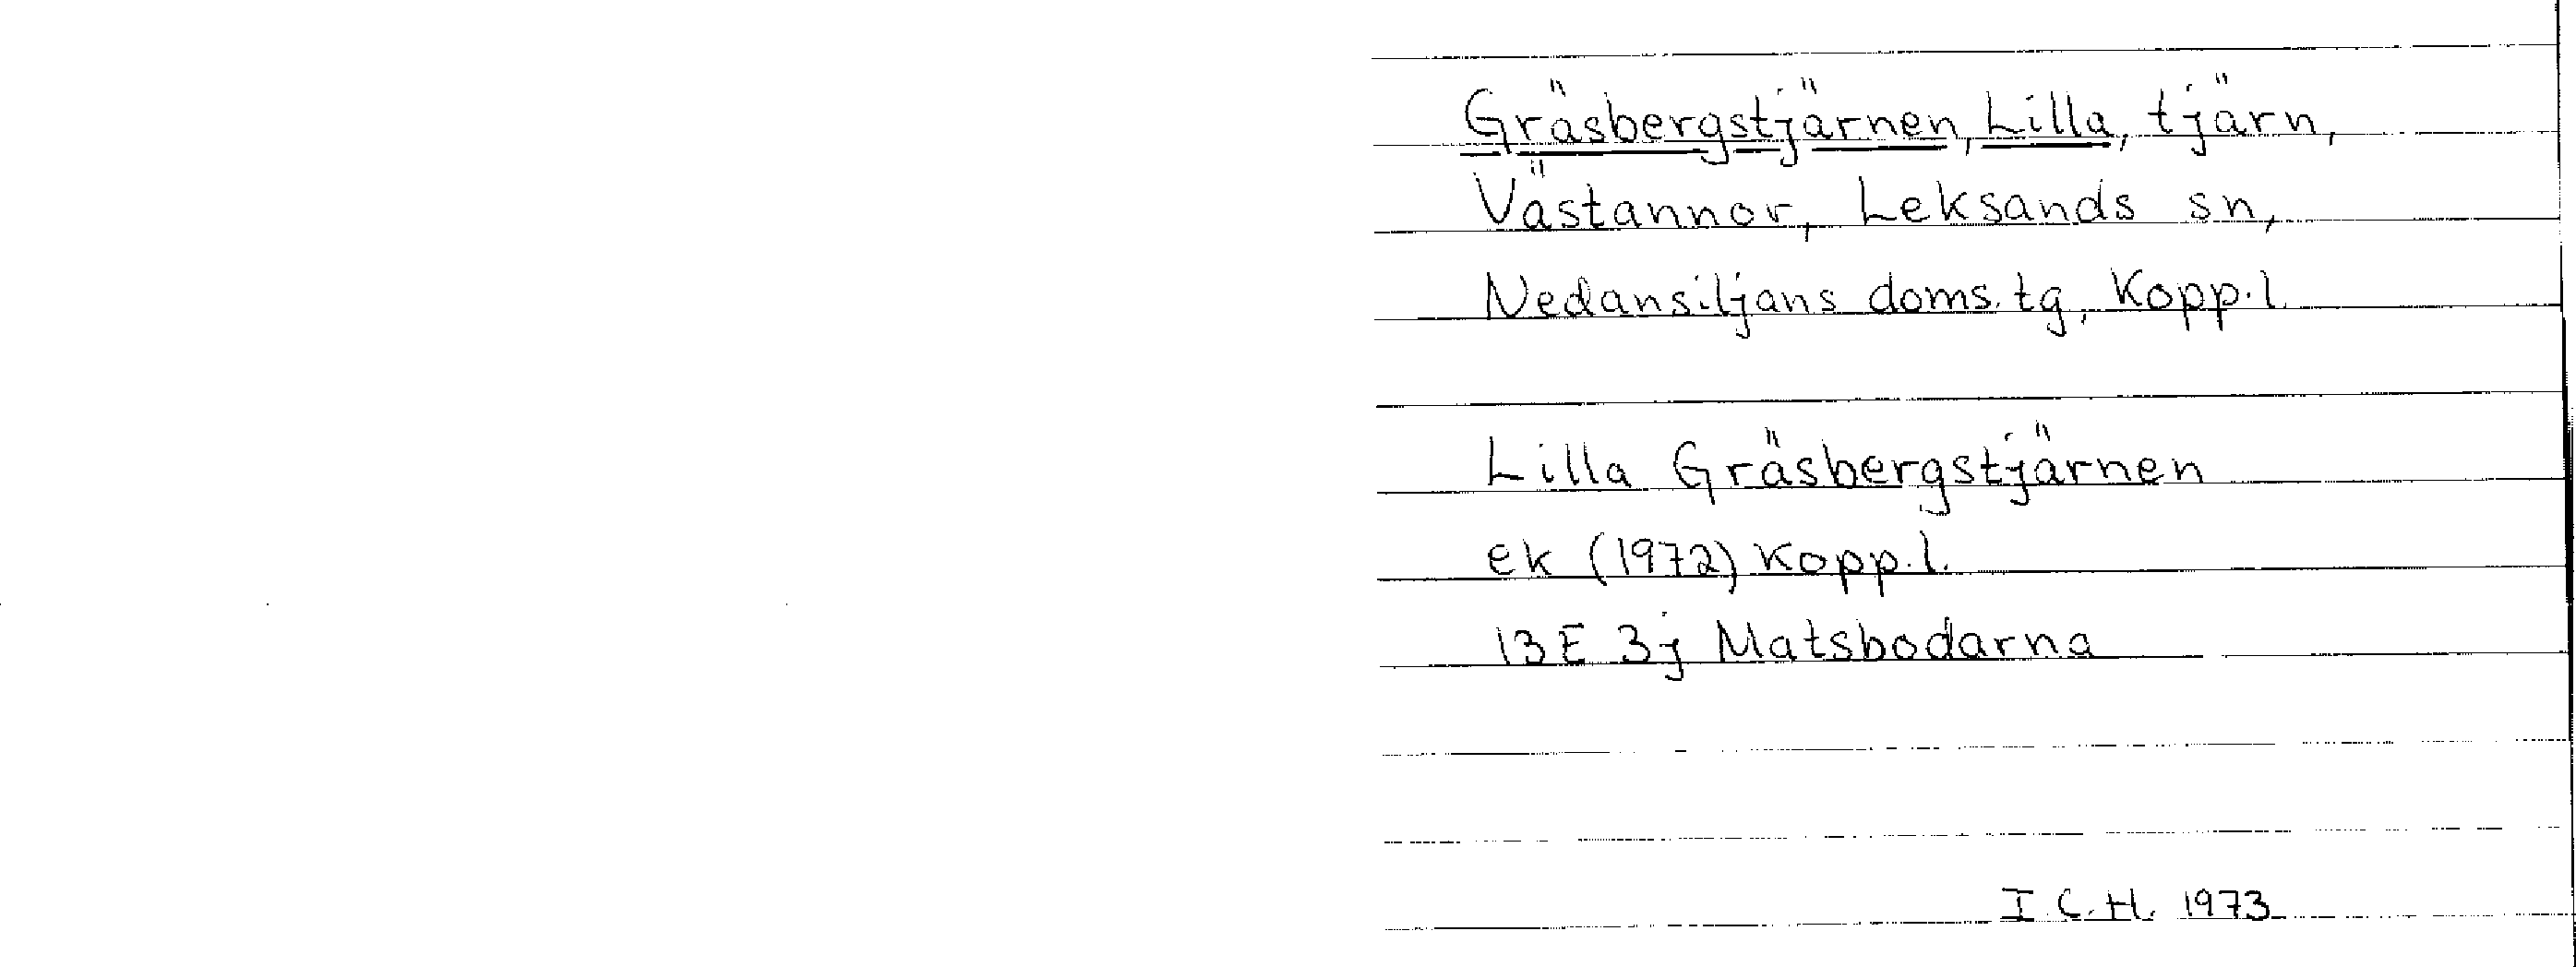 Gräsbergstjärnen, Lilla, tjärn,
Västannor, Leksands sn,
Nedansiljans doms.tg, Kopp.l.
Lilla Gräsbergstjärnen
ek (1972) Kopp.l.
13E 3j Matsbodarna
I.C.H. 1973